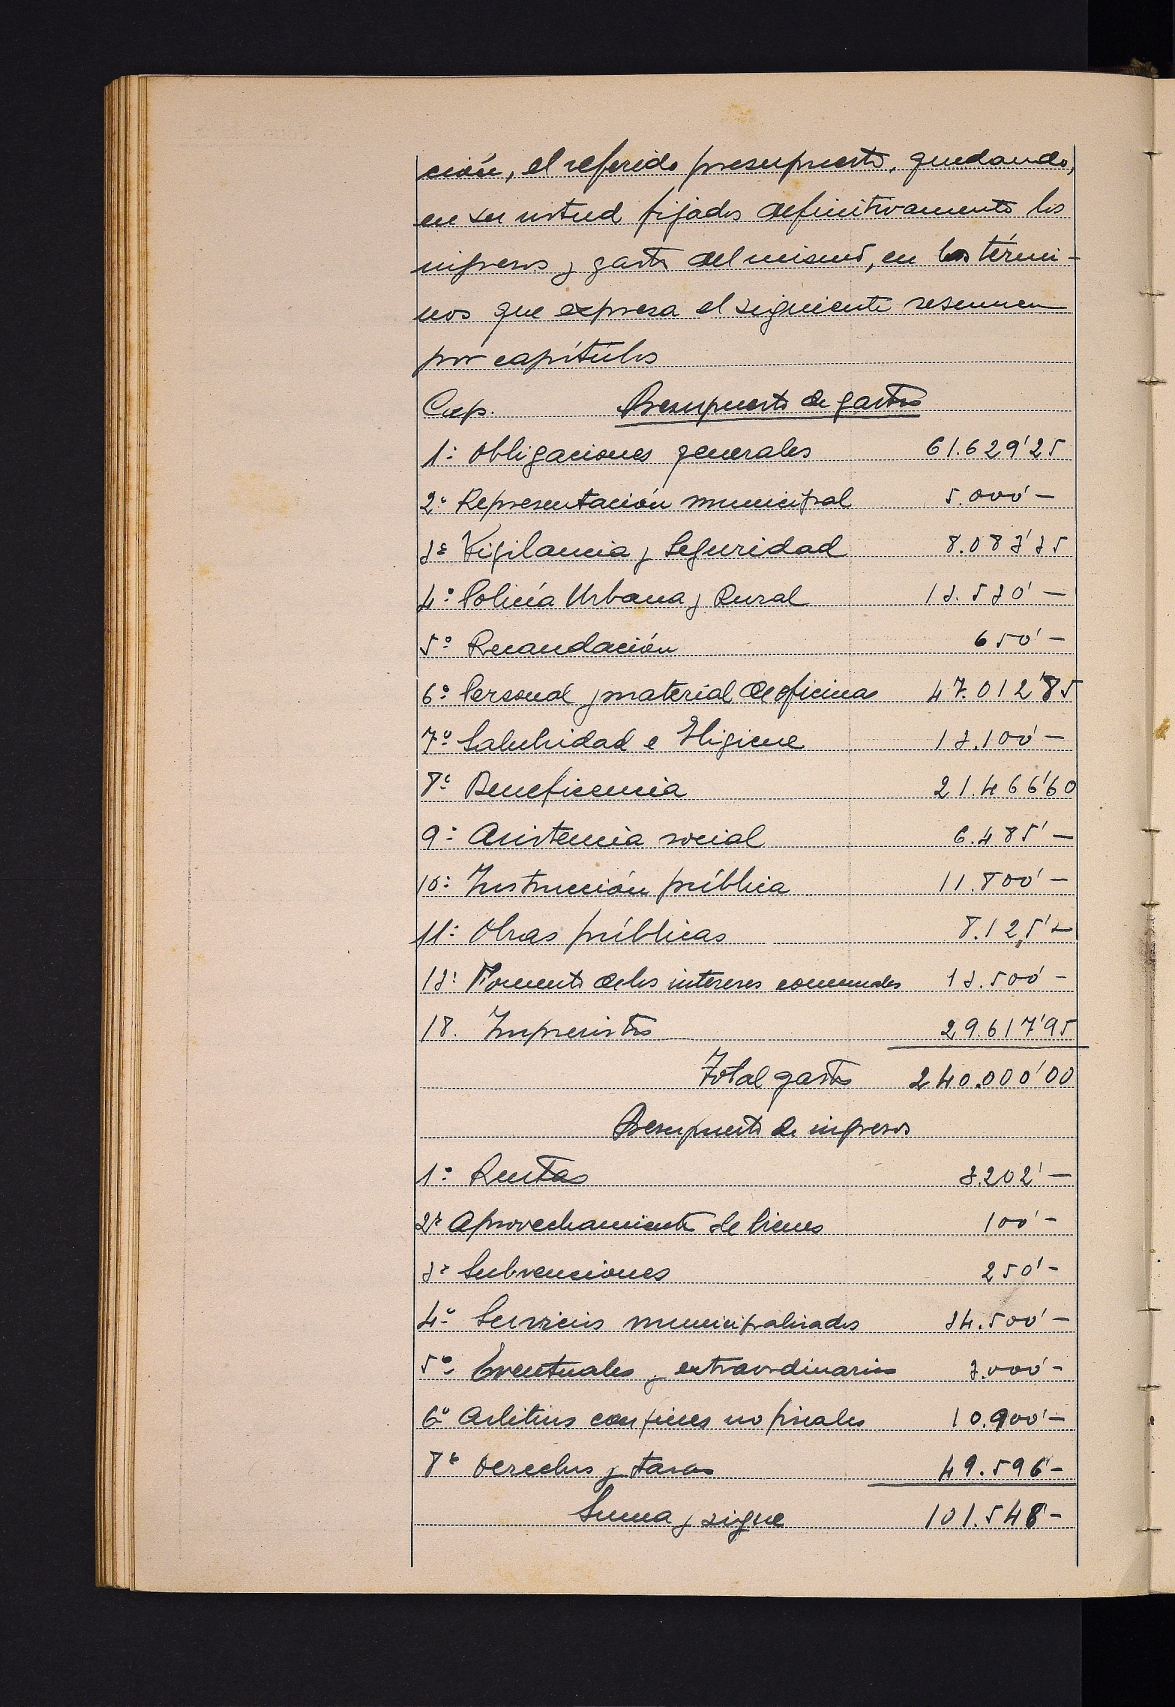 ción, el referido presupuesto, quedando,
en su virtud fijados definitivamente los
ingresos y gastos del mismo, en los térmi-
nos que expresa el siguiente resumen
por capítulos
Cap. Presupuesto de gastos
1º Obligaciones generales 61.629'25
2º Representación municipal 5.000'—
3º Vigilancia y Seguridad 8.083'35
4º Policía Urbana y Rural 13.530'—
5º Recaudación 650'—
6º Personal y material de oficinas 47.012'85
7º Salubridad e Higiene 13.100'—
8º Beneficencia 21.466'60
9º Asistencia social 6.485'—
10º Instrucción pública 11.800'—
11º Obras públicas 8.125'—
13º Fomento de los intereses comunales 13.500'—
18. Imprevistos 29.617'95
Total gastos 240.000'00
Presupuesto de ingresos
1º Rentas 3.202'—
2º Aprovechamiento de bienes 100'—
3º Subvenciones 250'—
4º Servicios municipalizados 34.500'—
5º Eventuales y extraordinarios 3.000'—
6º Arbitrios con fines no fiscales 10.900'—
8º Derechos y tasas 49.596'—
Suma y sigue 101.548'—